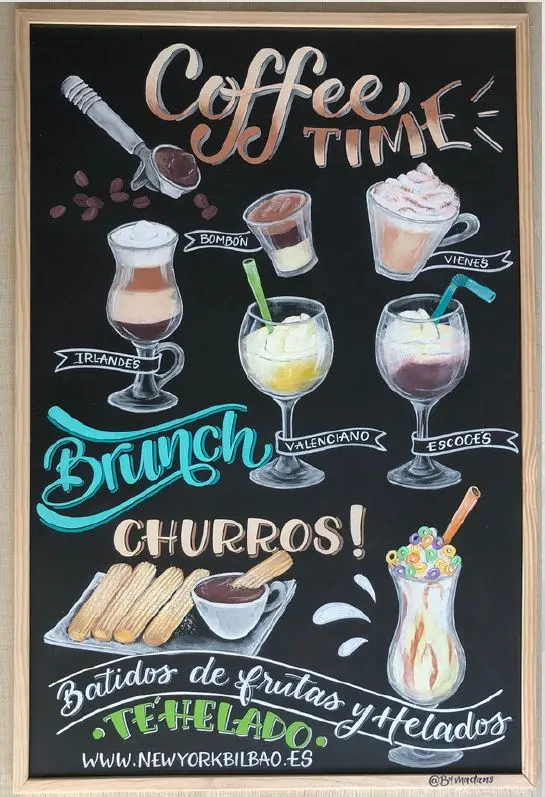 Coffee
TIME
BOMBÓN
VIENES
IRLANDES
VALENCIANO
ESCOCES
Brunch
CHURROS!
Batidos de frutas y Helados
•TÉ HELADO•
WWW.NEWYORKBILBAO.ES
@By madans